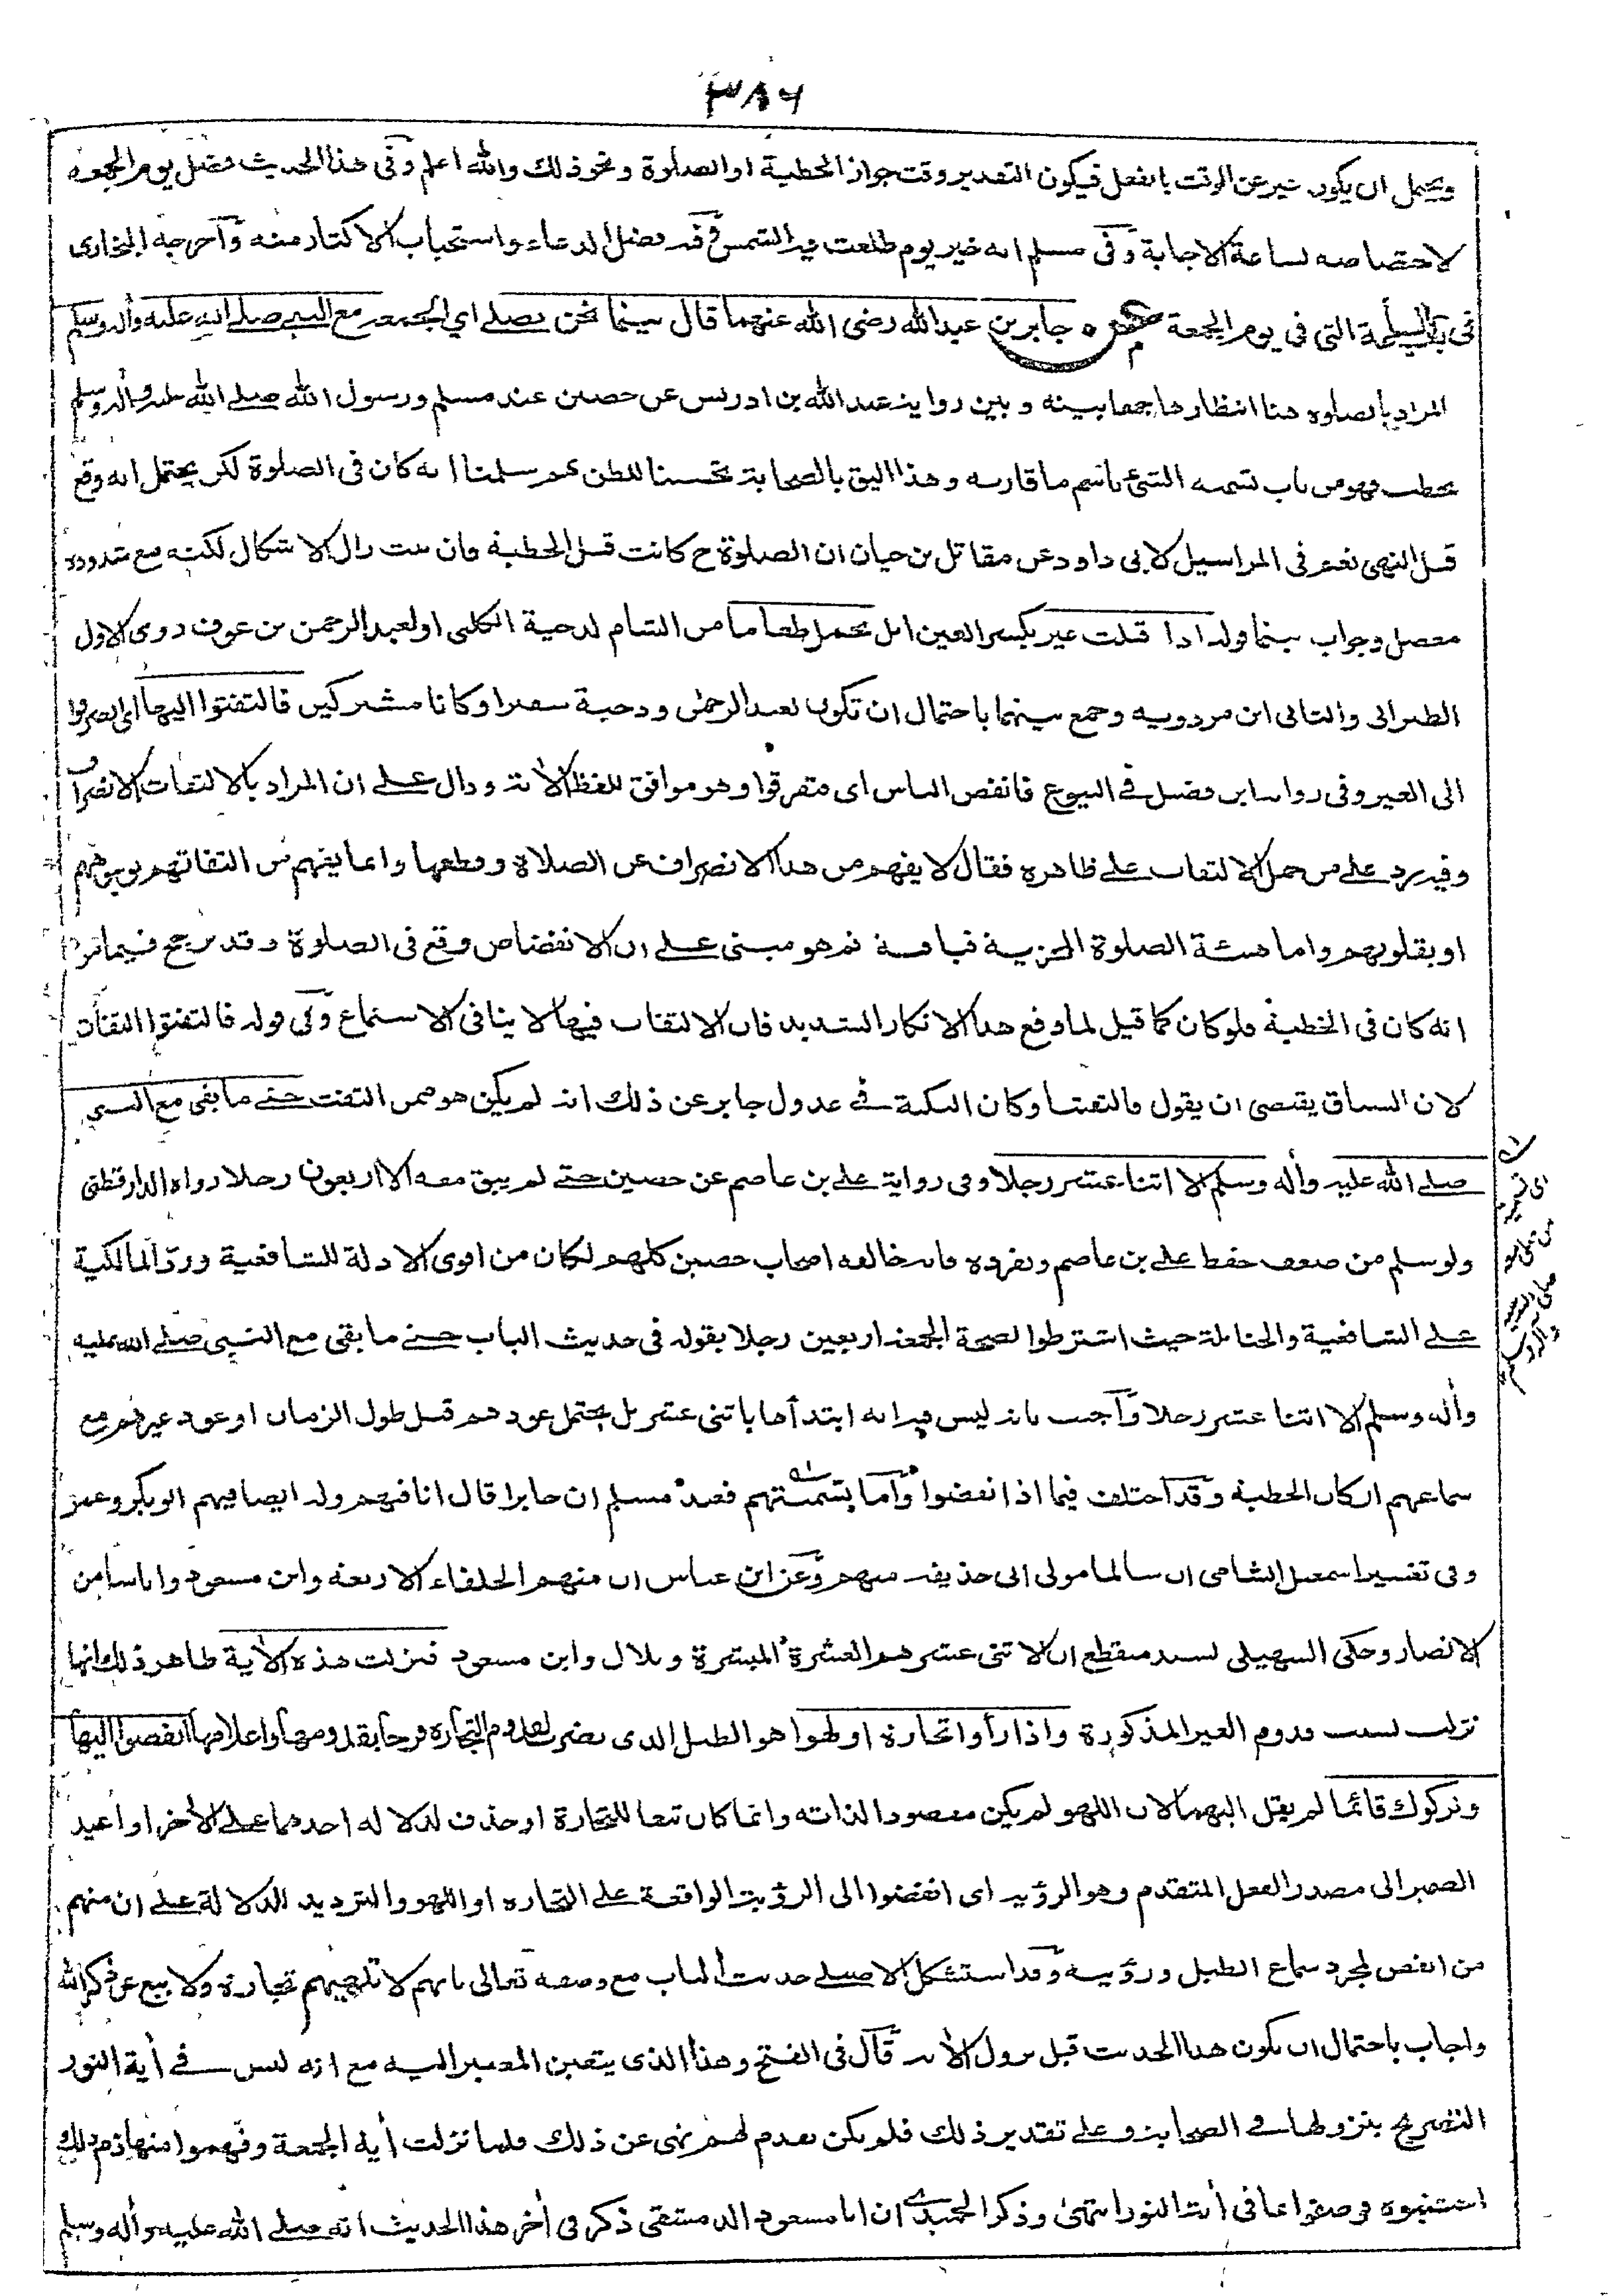 ٣٨٦
ويحتمل ان يكون عبر عن الوقت بالفعل فيكون التقدير وقت جواز الخطبة او الصلوة ونحو ذلك والله اعلم وفى هذا الحديث فضل يوم الجمعة
لاختصاصه بساعة الاجابة وفى مسلم انه خير يوم طلعت فيه الشمس وفيه فضل الدعاء واستحباب الاكثار منه وآخرجه البخارى
فى الساعة التى فى يوم الجمعة جابر بن عبدالله رضى الله عنهما قال بينما نحن نصلے اي الجمعة مع النبي صلے الله عليه وأله وسلم
المراد بالصلوة هنا انتظارها جمعا بينه وبين رواية عبدالله بن ادريس عن حصين عند مسلم ورسول الله صلے الله عليه وأله وسلم
يخطب فهو من باب تسمية الشئ باسم ما قاربه وهذا اليق بالصحابة تحسينا للظن بهم سلمنا انه كان فى الصلوة لكن يحتمل انه وقع
قبل النهى نعم فى المراسيل لابى داود عن مقاتل بن حيان ان الصلوة ح كانت قبل الخطبة فان ثبت زال الاشكال لكنه مع شذوذه
معضل وجواب بينما قوله اذا قبلت عير بكسر العين ابل تحمل طعاما من الشام لدحية الكلبى او لعبد الرحمن بن عوف روى الاول
الطبرانى والثانى ابن مردويه وجمع بينهما باحتمال ان تكون لعبد الرحمن ودحية سفيرا وكانا مشتركين فالتفتوا اليها اى انصرفوا
الى العير وفى رواية ابن فضيل فے البيوع فانفض الناس اى متفرقوا وهو موافق للفظ الأية ودال علے ان المراد بالالتفات الانصراف
وفيه رد علے من حمل الالتفات علے ظاهره فقال لا يفهم من هذا الانصراف عن الصلاة وقطعها وانما يفهم من التفاتهم بوجوههم
او بقلوبهم واما هيئة الصلوة المجزية فباقية ثم هو مبنى علے ان الانفضاض وقع فى الصلوة وقد ترجح فيما مر
انه كان فى الخطبة فلو كان كما قيل لما وقع هذا الانكار الشديد فان الالتفات فيها لا ينافى الاستماع وفى قوله فالتفتوا التفات
لان السياق يقتضى ان يقول فالتفتنا وكان النكتة فے عدول جابر عن ذلك انه لم يكن هو ممن التفت حتے ما بقى مع النبى
صلے الله عليه وأله وسلم الا اثنا عشر رجلا وفى رواية علے بن عاصم عن حصين حتے لم يبق معه الا اربعون رجلا رواه الدارقطنى
ولو سلم من ضعف حفظ علے بن عاصم وتفرده فانه خالفه اصحاب حصين كلهم لكان من اقوى الادلة للشافعية ورد المالكية
علے الشافعية والحنابلة حيث اشترطوا لصحة الجمعة اربعين رجلا بقوله فى حديث الباب حتے ما بقى مع النبى صلے الله عليه
وأله وسلم الا اثنا عشر رجلا وآجيب بانه ليس فيه انه ابتدأها باثنى عشر بل يحتمل عودهم قبل طول الزمان او عود غيرهم مع
سماعهم اركان الخطبة وقد اختلف فيما اذا انفضوا وآما تسميتهم فعند مسلم ان جابرا قال انا فيهم وله ايضا فيهم ابو بكر وعمر
وفى تفسير اسمعيل الشامى ان سالما مولى ابى حذيفة منهم وعن ابن عباس ان منهم الخلفاء الاربعة وابن مسعود واناسا من
الانصار وحكى السهيلى بسند منقطع ان الاثنى عشر هم العشرة المبشرة وبلال وابن مسعود فنزلت هذه الأية ظاهر ذلك انها
نزلت بسبب قدوم العير المذكورة واذا رأوا تجارة او لهوا هو الطبل الذى يضرب لقدوم التجارة فرحا بقدومها واعلامها انفضوا اليها
وتركوك قائما لم يقل اليهما لان اللهو لم يكن مقصودا لذاته وانما كان تبعا للتجارة او حذف لدلالة احدهما علے الأخر او اعيد
الضمير الى مصدر الفعل المتقدم وهو الرؤية اى انفضوا الى الرؤية الواقعة علے التجارة او اللهو والترديد للدلالة علے ان منهم
من انفض لمجرد سماع الطبل ورؤيته وقد استشكل الاصيلے حديث الباب مع وصفه تعالى بانهم لا تلهيهم تجارة ولا بيع عن ذكر الله
واجاب باحتمال ان يكون هذا الحديث قبل نزول الأية قآل فى الفتح وهذا الذى يتعين المصير اليه مع انه ليس فے أية النور
التصريح بنزولها فے الصحابة وعلے تقدير ذلك فلم يكن تقدم لهم نهى عن ذلك فلما نزلت أية الجمعة وفهموا منها ذم ذلك
اجتنبوه فوصفوا بما فى أية النور انتهى وذكر الحميدے ان ابا مسعود الدمشقى ذكر فى أخر هذا الحديث انه صلے الله عليه وأله وسلم